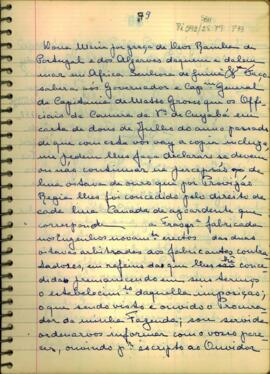 79
Dona Maria por graça de Deos Rainha de
Portugal e dos Algarves daquem e dalem
mar em Africa Senhora de Guiné &ª Faço
saber a vós Governador e Capᵐ General
da Capitania de Matto Grosso que os Offi-
ciais da Camara da Vª do Cuyabá em
carta de dous de Julho do anno passado
de que com esta vos vay a copia inclusa,
me pedem lhes faça declarar se devem
ou não continuar na percepção da
de huma oitava de ouro que por Provizão
Regia lhes foi concedido pelo direito de
cada huma Canada de agoardente que
corresponde a Frasqᵃ fabricada
nos engenhos novamᵗᵉ erectos das duas
oitavas arbitradas dos fabricantes, contra-
tadores, em refens das que lhes são con-
cedidas
o estabelecimᵗᵒ daquella impozição;
o que sendo visto e ouvido o Procura-
dor da minha Fazenda; sou servida
ordenarvos informeis com o vosso pare-
cer, ouvindo pʳ escripto ao Ouvidor